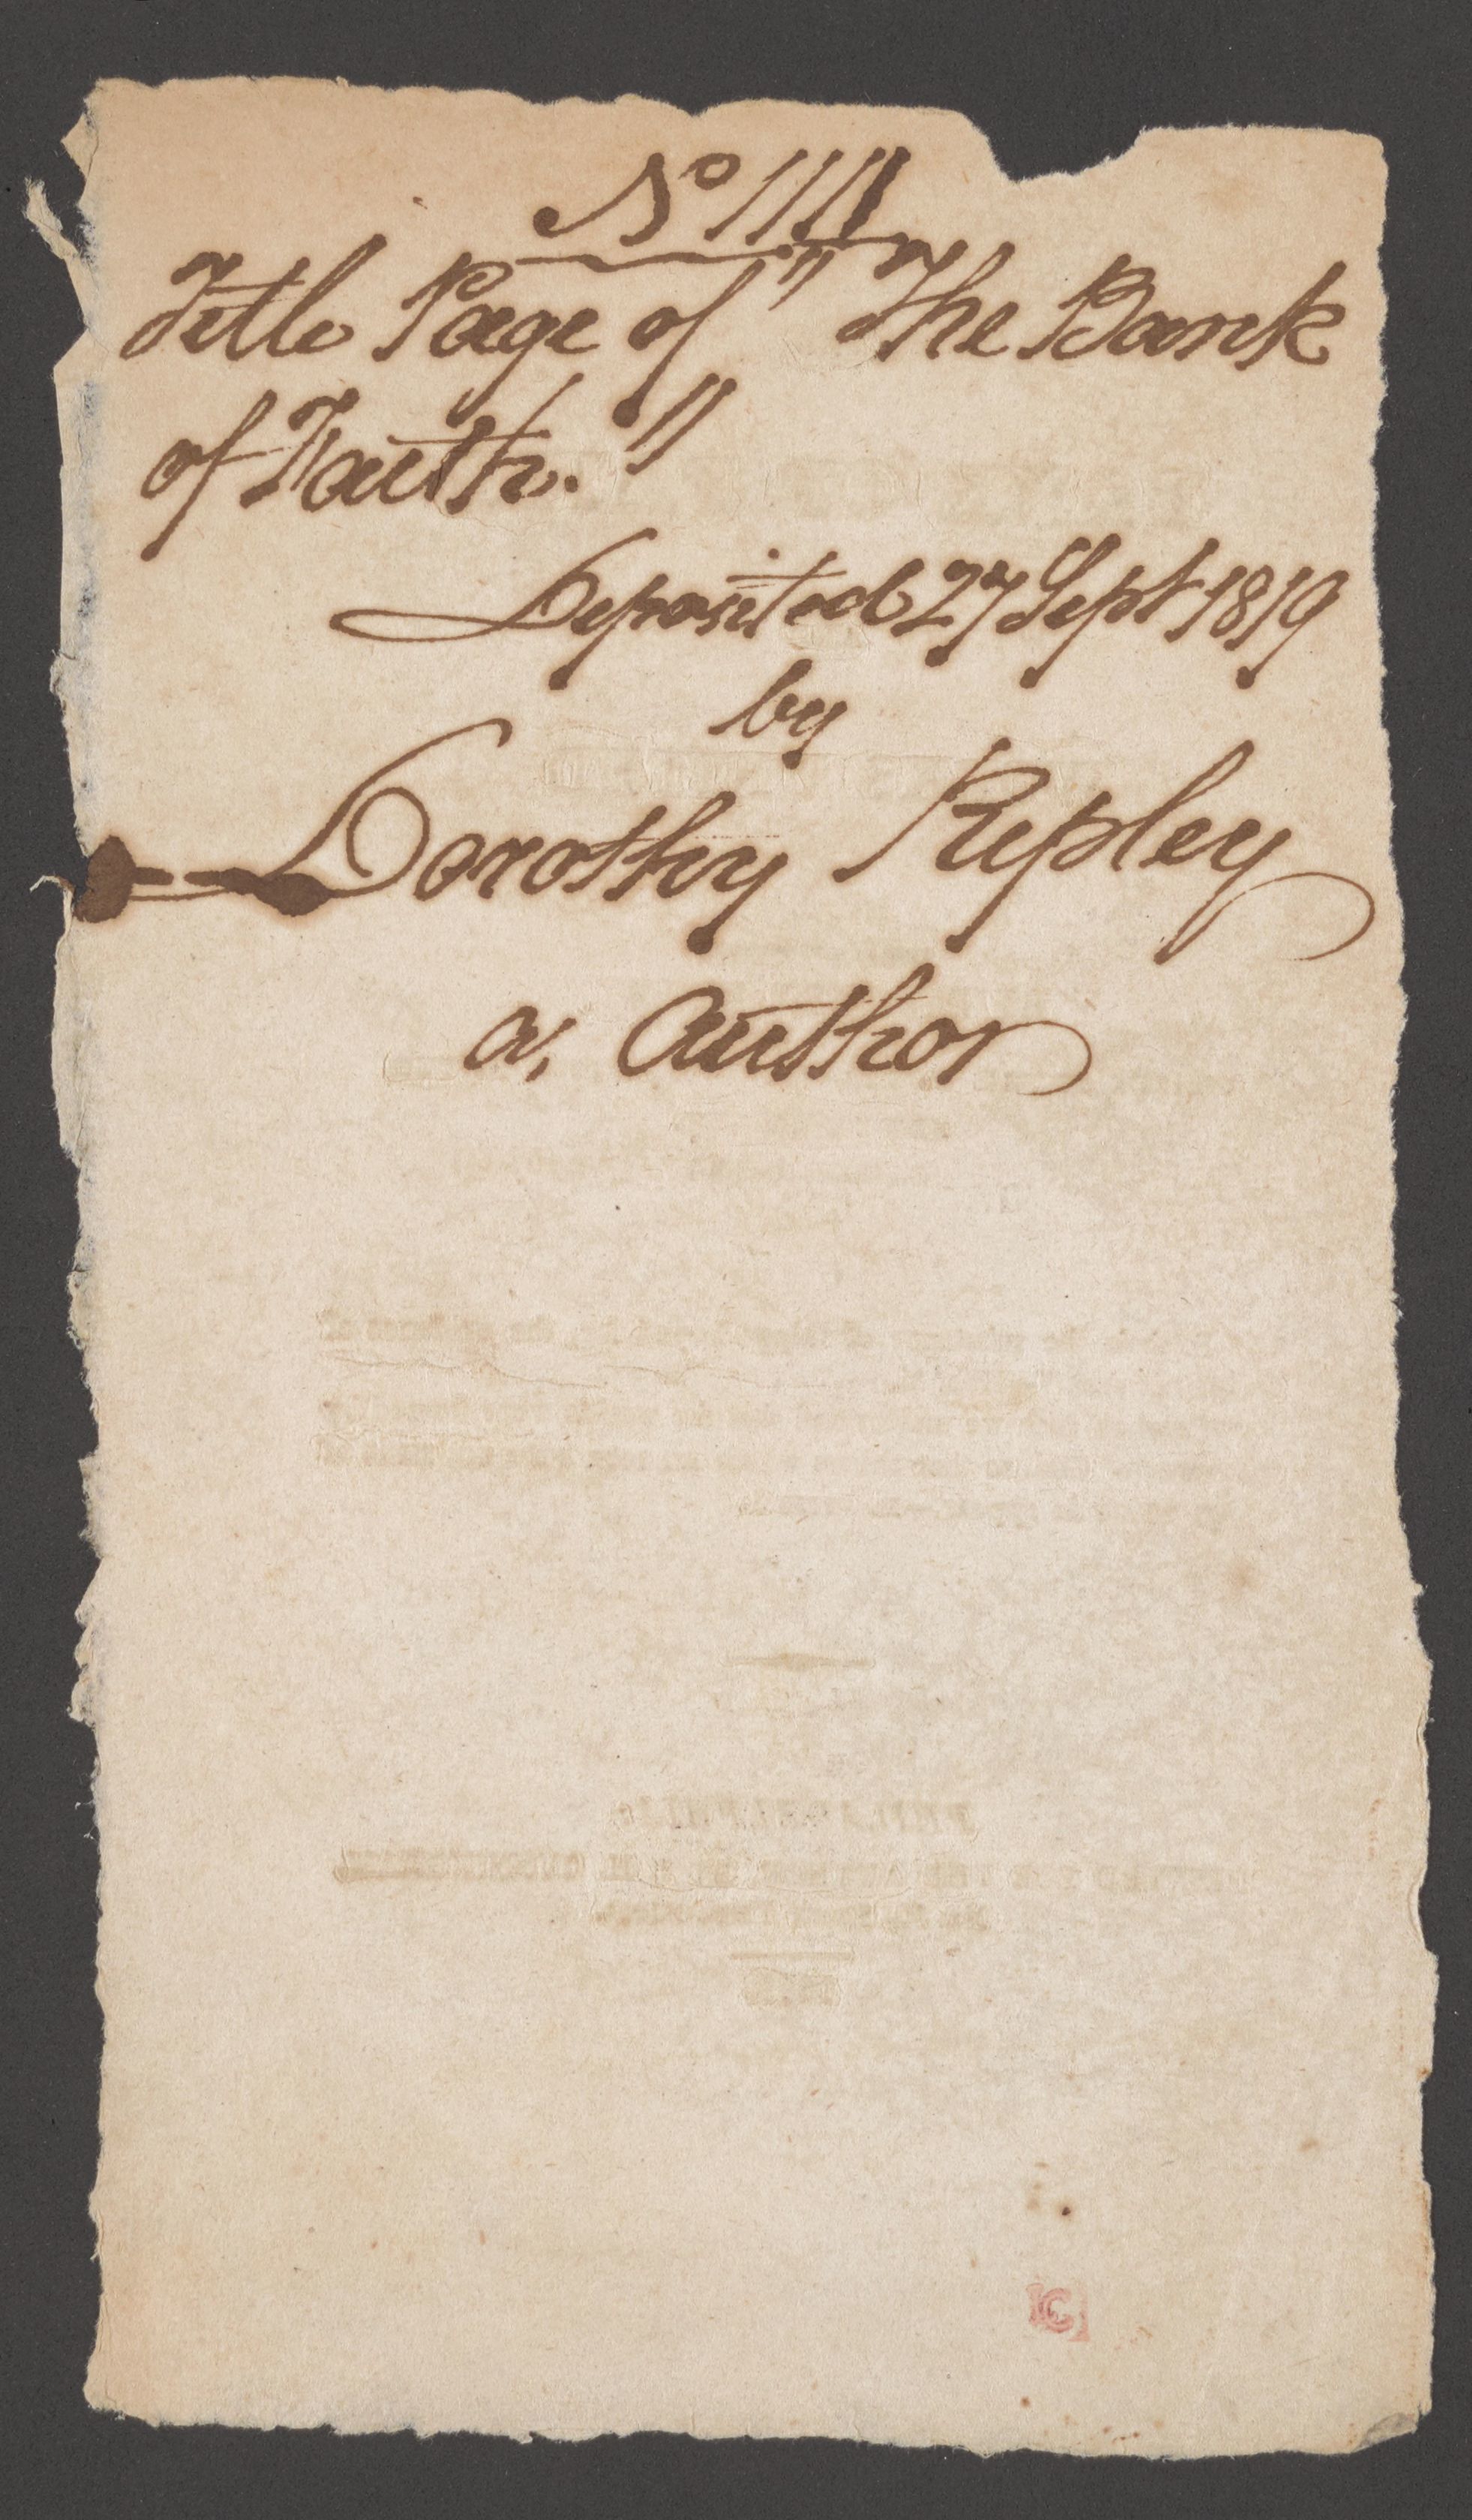 No 111
Title Page of "The Bank
of Faith."
Deposited 27 Sept 1819
by
Dorothy Ripley
a, Author